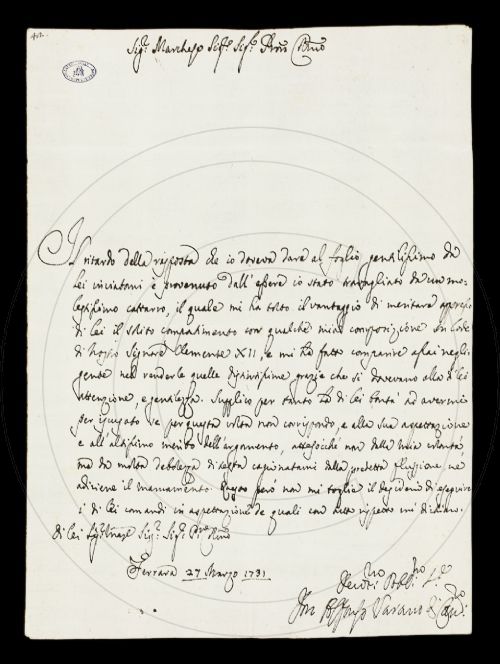 Sig.r Marchese Sig.r Sig.r Pron Cmo
Il ritardo della risposta che io doveva dare al foglio gentilissimo da
lei inviatomi è provenuto dall'essere io stato travagliato da un mo-
lestissimo catarro, il quale mi ha tolto il vantaggio di meritare appresso
di lei il solito compatimento con qualche mia composizione in lode
di Clemente XII, e mi ha fatto comparire assai negli-
gente nel renderle quelle grazie che si dovevano alla di lei
attenzione, e gentilezza. Supplico per tanto la di lei bontà ad avermi
per iscusato se per questa volta non corrispondo, e alla sua aspettazione
e all'altissimo merito dell'argomento, attesochè non dalla mia volontà,
ma da molta debolezza di testa cagionatami dalla predetta flussione, ne
adiviene il mancamento. però non mi toglie il desiderio di eseguire
i di lei comandi in aspettazione de quali con tutto rispetto mi dichiaro.
Di lei Sig.r Sig.r
Ferrara 27 Marzo 1731
Alfonso Varano di